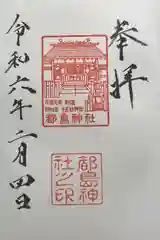 奉拝
都島神社
都島神
社之印
令和六年二月四日